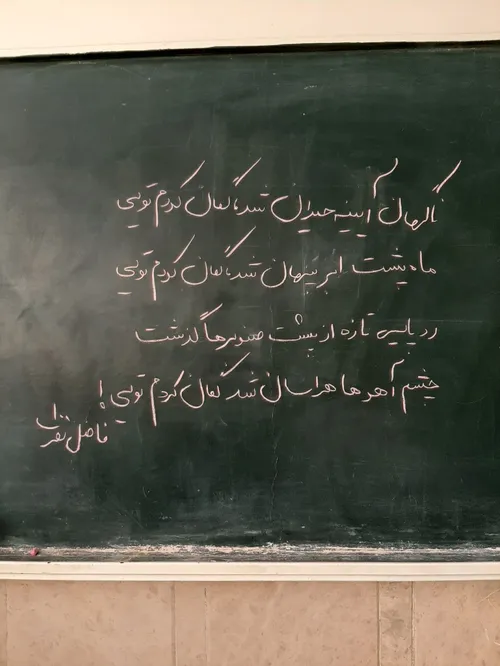 ناگهان آیینه حیران شد، گمان کردم تویی
ماه پشت ابر پنهان شد، گمان کردم تویی
ردپایی تازه از پشت صنوبرها گذشت
چشم آهوها هراسان شد گمان کردم تویی!
فاضل نظری